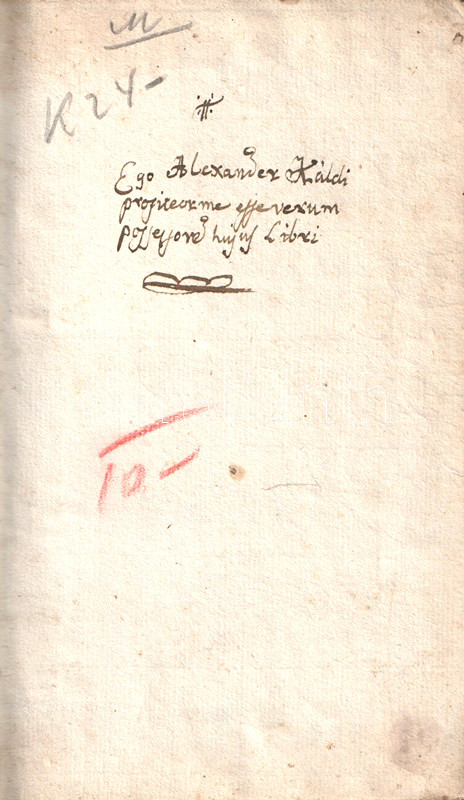 M
K 24-
Ego Alexander Káldi
profiteor me esse verum
Possessorē hujus Libri
10-